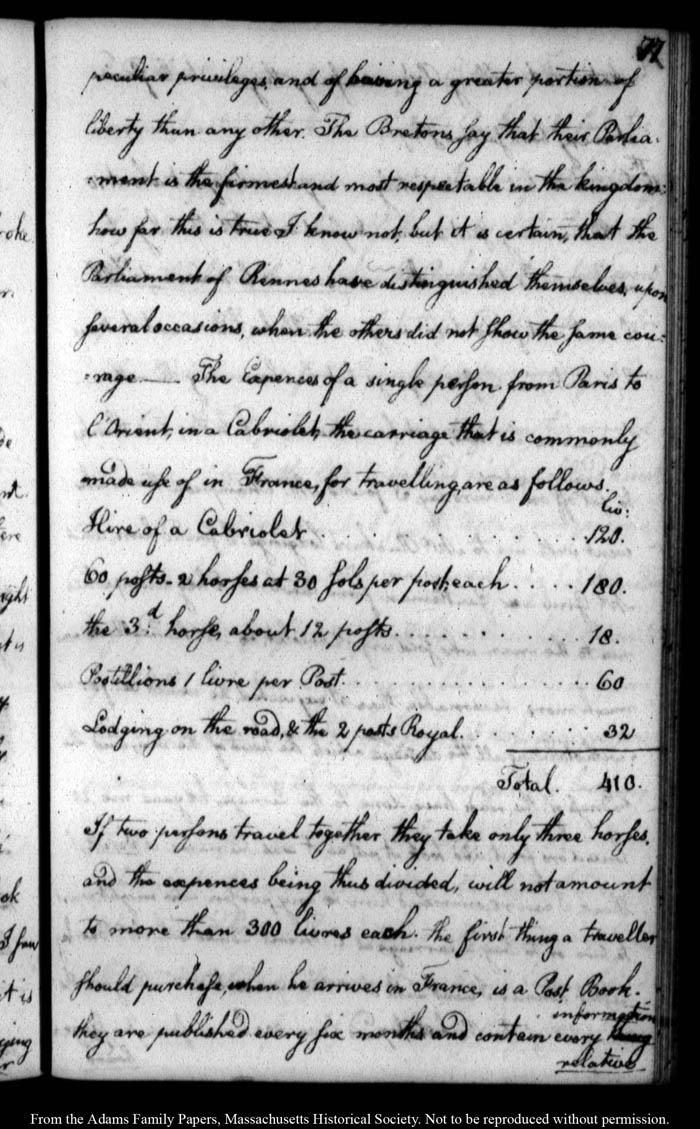 77
peculiar privileges, and of having a greater portion of
liberty than any other. The Bretons say that their Parlia-
-ment is the firmest and most respectable in the kingdom:
how far this is true I know not, but it is certain, that the
Parliament of Rennes have distinguished themselves, upon
several occasions, when the others did not show the same cou:
:rage — The Expences of a single person from Paris to
l'Orient, in a Cabriolet, the carriage that is commonly
made use of in France, for travelling, are as follows.
liv:
Hire of a Cabriolet. . . . . . . . . . 120.
60 posts. 2 horses at 30 sols per post, each . . . . 180.
the 3.d horse, about 12 posts. . . . . . . . . 18.
Postillions 1 livre per Post. . . . . . . . . . . 60
Lodging on the road, & the 2 posts Royal. . . . . . . 32
Total. 410.
If two persons travel together they take only three horses,
and the expences being thus divided, will not amount
to more than 300 livres each. the first thing a traveller
should purchase, when he arrives in France, is a Post Book.
information
they are published every six months and contain every
relative
roke
r.
de
nt.
ere
ight
t is
y
ok
I saw
it is
ying
r
From the Adams Family Papers, Massachusetts Historical Society. Not to be reproduced without permission.